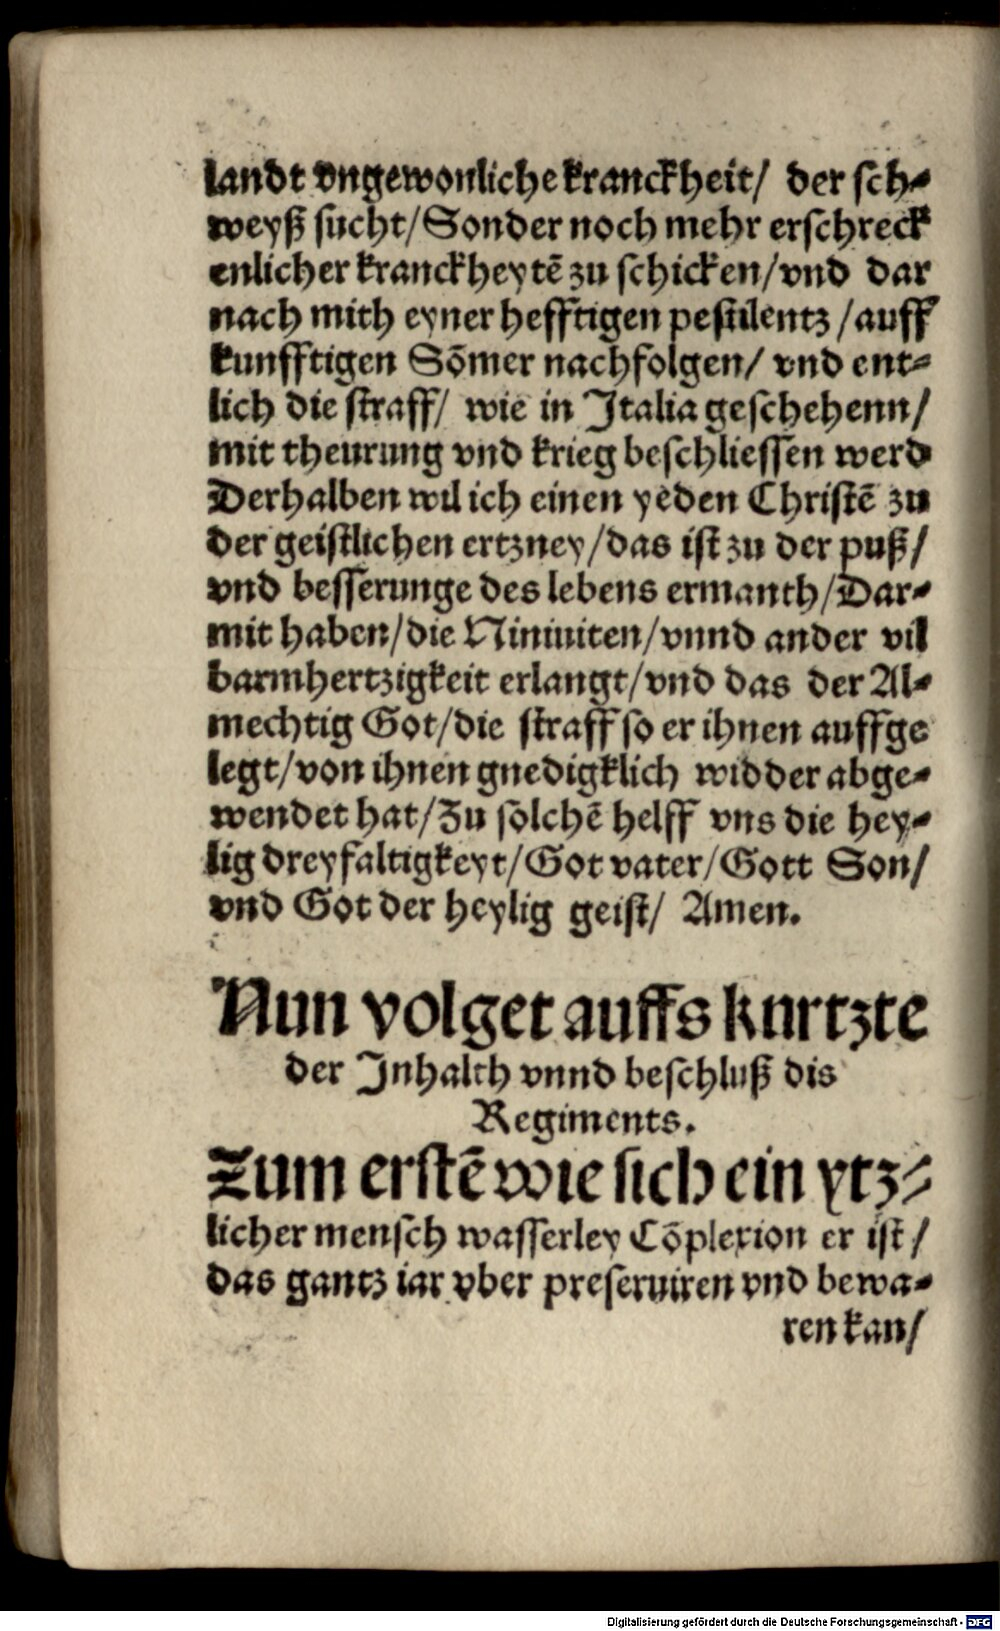 landt vngewonliche kranckheit/ der sch⸗
weyß sucht/Sonder noch mehr erschreck
enlicher kranckheytē zu schicken/vnd dar
nach mith eyner hefftigen pestilentz /auff
kunfftigen Sōmer nachfolgen/ vnd ent⸗
lich die straff/ wie in Italia geschehenn/
mit theurung vnd krieg beschliessen werd
Derhalben wil ich einen yeden Christē zu
der geistlichen ertzney/das ist zu der puß/
vnd besserunge des lebens ermanth/Dar⸗
mit haben/die Niniuiten/vnnd ander vil
barmhertzigkeit erlangt/vnd das der Al⸗
mechtig Got/die straff so er ihnen auffge
legt/von ihnen gnedigklich widder abge⸗
wendet hat/Zu solchē helff vns die hey⸗
lig dreyfaltigkeyt/Got vater/Gott Son/
vnd Got der heylig geist/ Amen.
Nun volget auffs kurtzte
der Inhalth vnnd beschluß dis
Regiments.
Zum erstē wie sich ein ytz⸗
licher mensch wasserley Cōplexion er ist/
das gantz iar vber preseruiren vnd bewa⸗
ren kan/
Digitalisierung gefördert durch die Deutsche Forschungsgemeinschaft - DFG